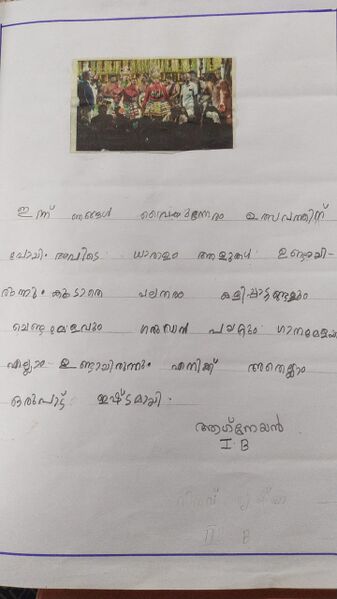 ഇന്ന് ഞങ്ങൾ വൈകുന്നേരം ഉത്സവത്തിന്
പോയി. അവിടെ ധാരാളം ആളുകൾ ഉണ്ടായി-
രുന്നു. കൂടാതെ പലതരം കളിപ്പാട്ടങ്ങളും
ചെണ്ടമേളവും ഗരുഡൻ പറവയും ഗാനമേളയും
എല്ലാം ഉണ്ടായിരുന്നു. എനിക്ക് അതെല്ലാം
ഒരുപാട് ഇഷ്ടമായി.
ആഗ്നേയൻ
I B
II B